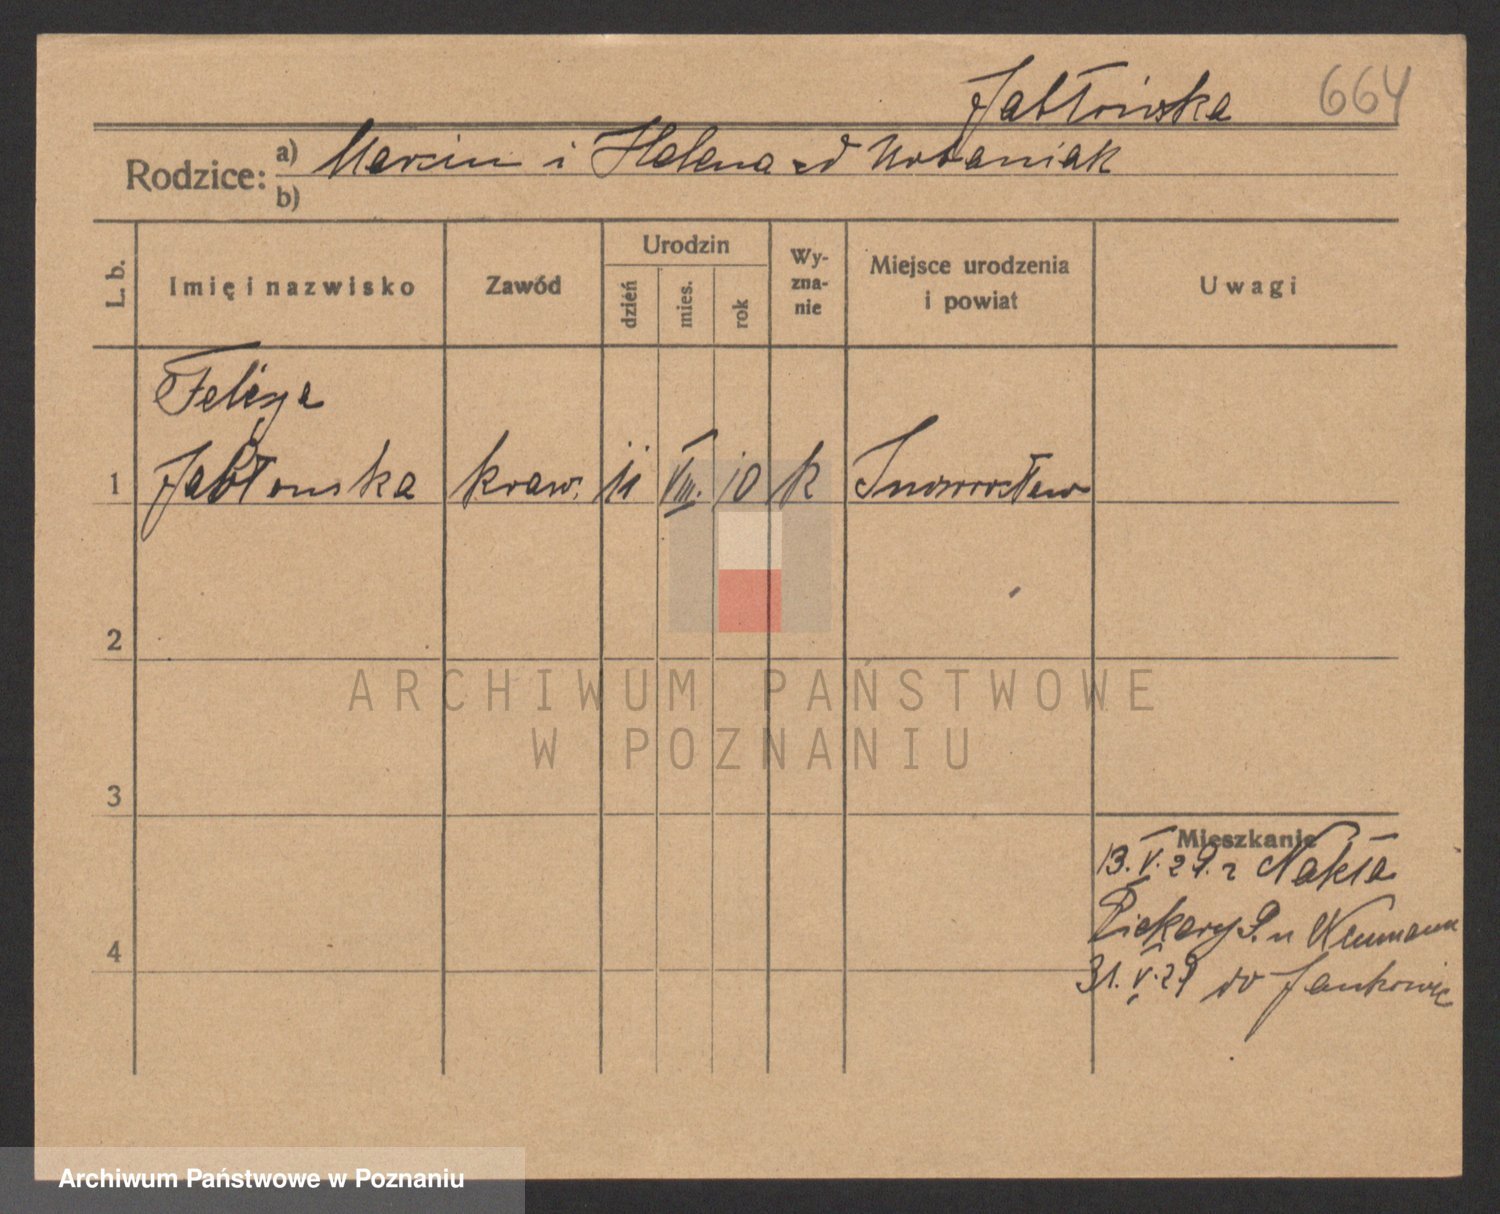 Jabłońska 664
Rodzice: a) Marcin i Helena zd Urbaniak
b)
L. b. Imię i nazwisko Zawód Urodzin dzień mies. rok Wyznanie Miejsce urodzenia i powiat Uwagi
Felicja
1 Jabłonska kraw. 11 VIII. 10 k Inowrocław
2
ARCHIWUM PAŃSTWOWE
W POZNANIU
3
Mieszkanie
13.V.29. z Nakła
Piekary 9. u
4
31.V.29 do Jankowic
Archiwum Państwowe w Poznaniu